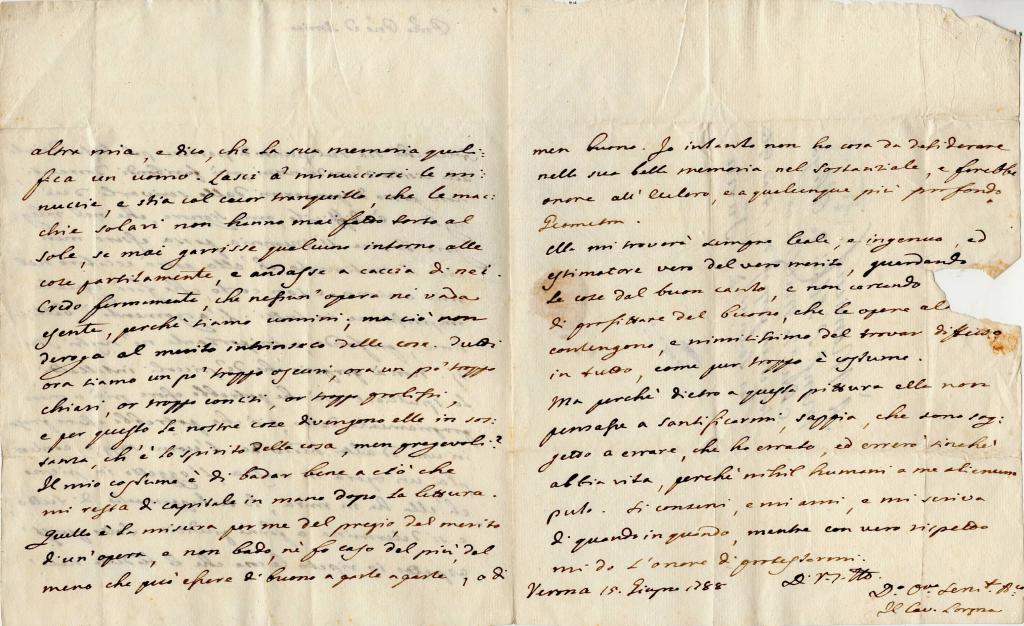 altra mia, e dico, che la sua memoria quali=
fica un uomo. Lasci a' minucciosi le mi=
nuccie, e stia col cuor tranquillo, che le mac=
chie solari non hanno mai fatto torto al
sole, se mai garrisse qualcuno intorno alle
cose partitamente, e andasse a caccia di nei.
Credo fermamente, che nessun' opera ne vada
esente, perchè siamo uomini; ma ciò non
deroga al merito intrinseco delle cose. Tutti
ora siamo un pò troppo oscuri, ora un pò troppo
chiari, or troppo concisi, or troppo prolissi,
e per questo le nostre cose divengono elle in sos=
tanza, ch'è lo spirito della cosa, men pregevoli?
Il mio costume è di badar bene a ciò che
mi resta di capitale in mano dopo la lettura.
Quello è la misura per me del pregio, del merito
d'un' opera, e non bado, nè fo caso del più, del
meno che può essere di buono a parte a parte, o di
men buono. Io intanto non ho cosa da desiderare
nella sua bella memoria nel sostanziale, e farebbe
onore all' Eulero, e a qualunque più profondo
Geometra.
Ella mi troverà sempre leale, e ingenuo, ed
estimatore vero del vero merito, guardando
le cose dal buon canto, e non cercando
di profittare del buono, che le opere al
contengono, e nimicissimo del trovar difetto
in tutto, come pur troppo è costume.
Ma perchè dietro a questa pittura ella non
pensasse a santificarmi, sappia, che sono sog=
getto a errare, che ho errato, ed errerò sinchè
abbia vita, perchè nihil humani a me alienum
puto. Si conservi, e mi ami, e mi scriva
di quando in quando, mentre con vero rispetto
mi do l'onore di protestarmi.
Verona 15. Giugno 1788
Il Cav. Lorgna